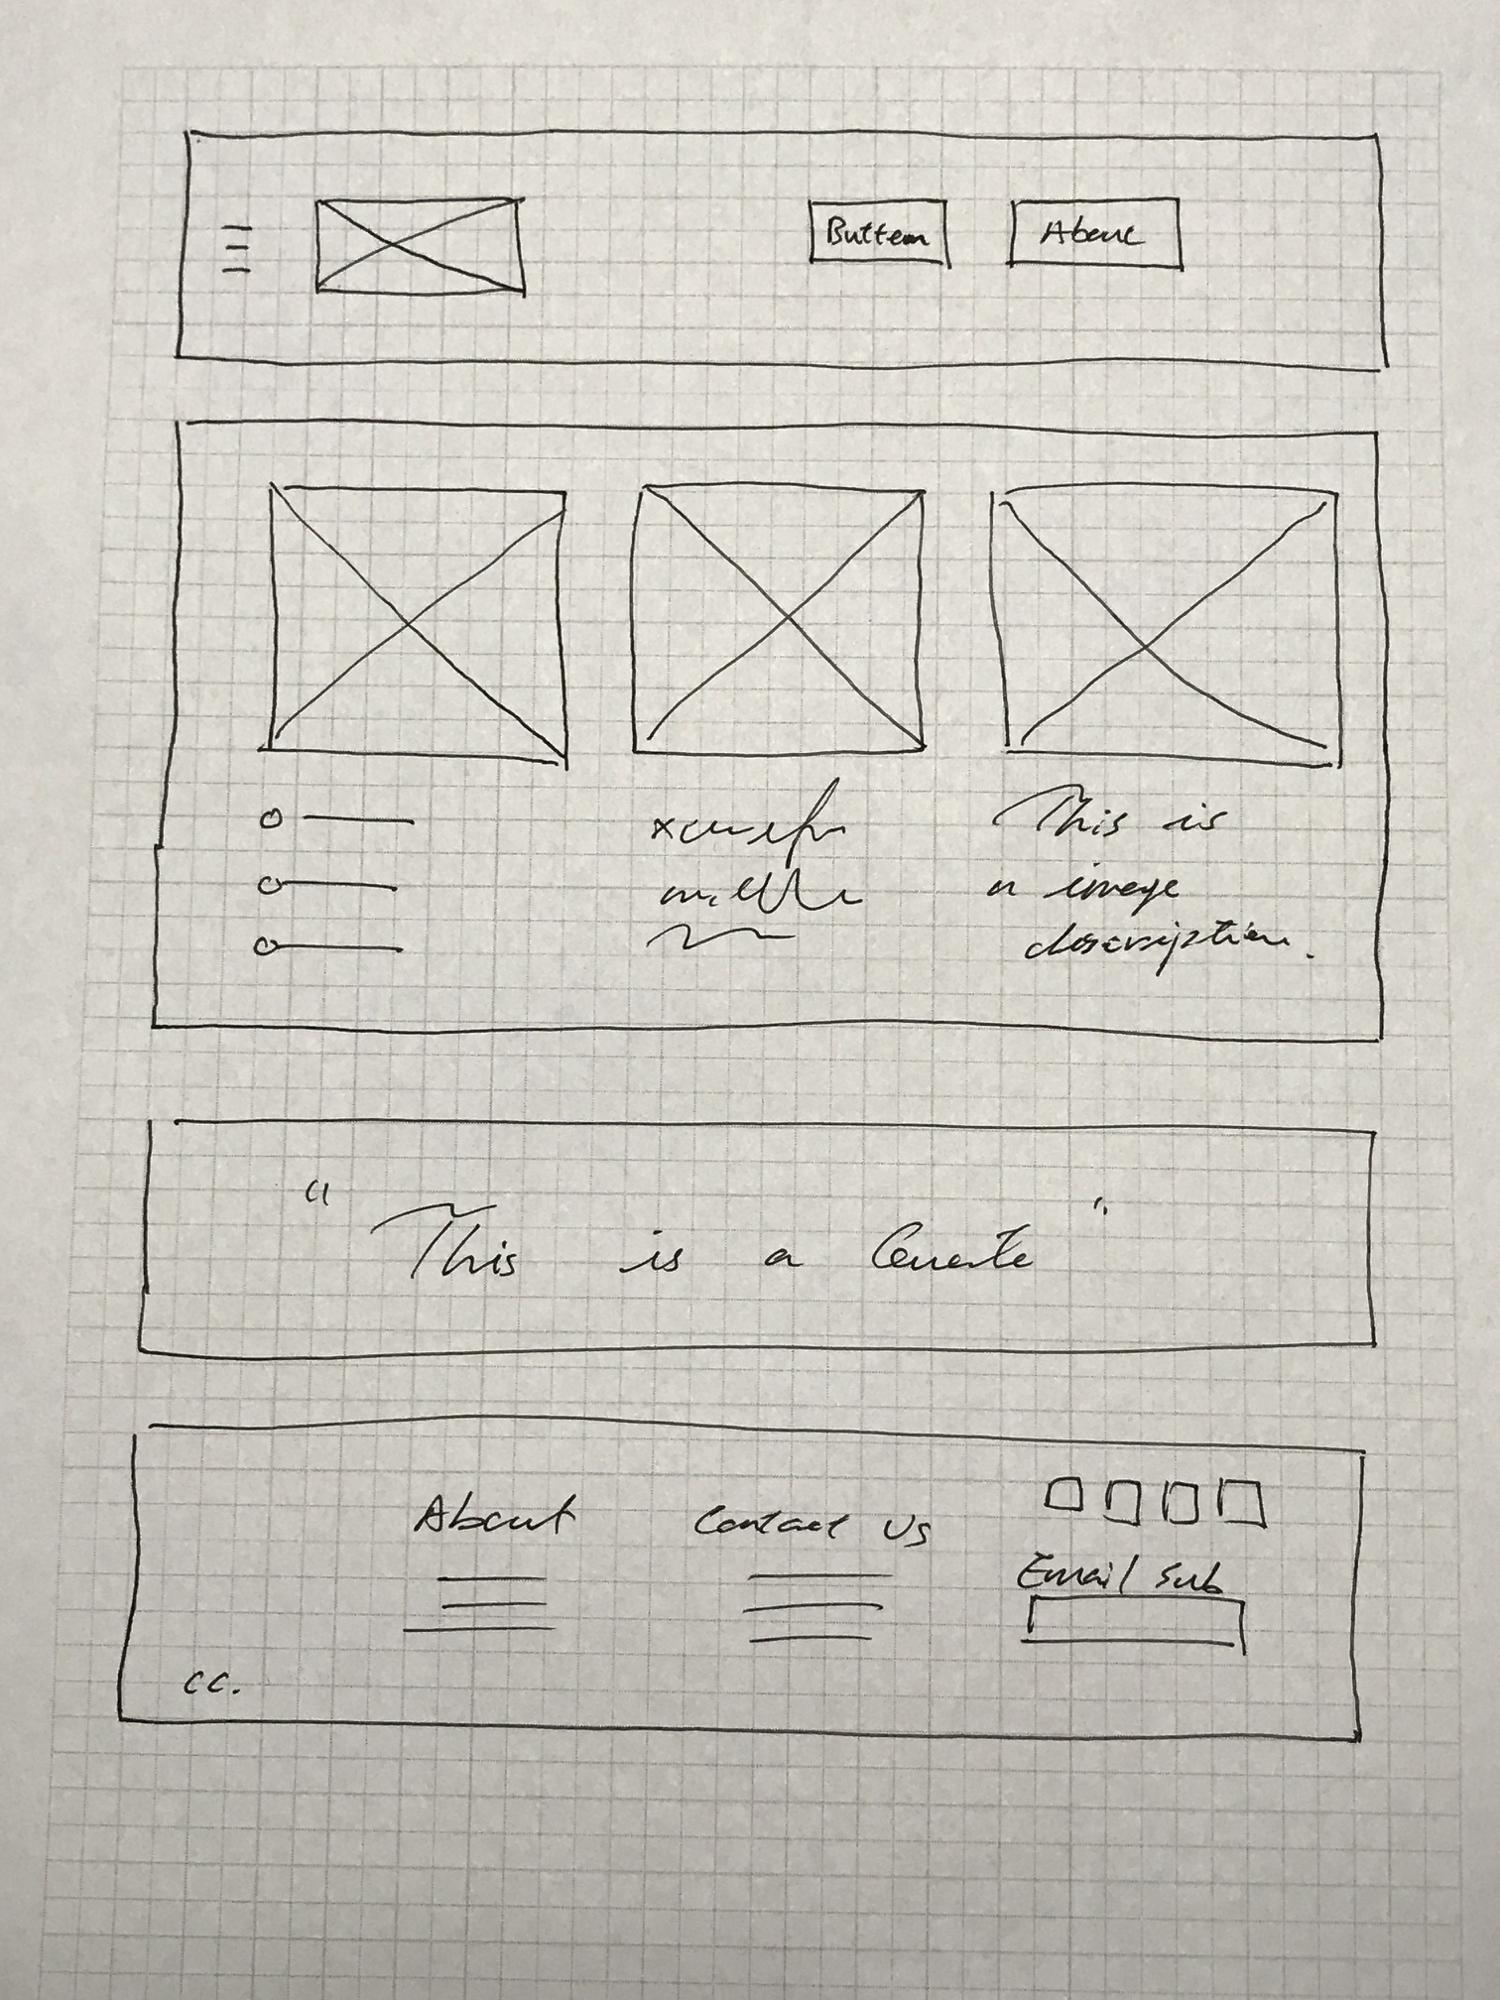 Button
About
This is
a image
description.
" This is a Quote "
About
Contact Us
Email Sub
cc.